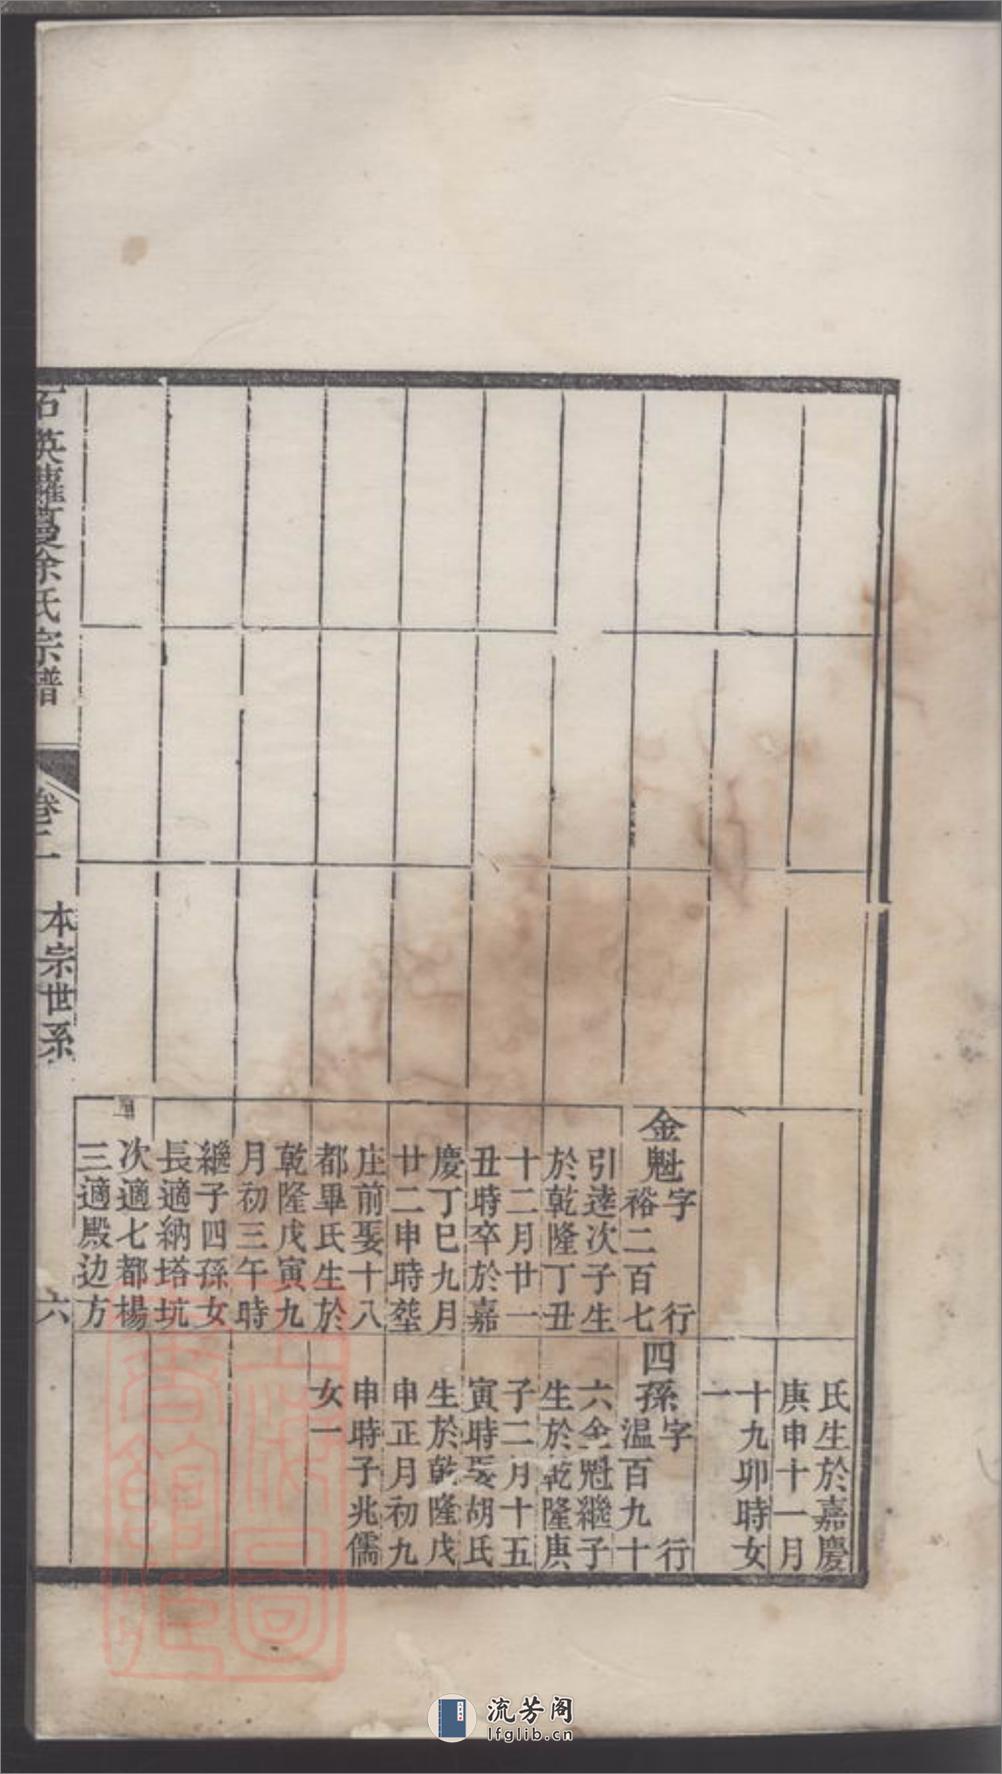 金魁字行
裕二百七
引達次子生
於乾隆丁丑
十二月廿一
丑時卒於嘉
慶丁巳九月
廿二申時塟
庄前娶十八
都畢氏生於
乾隆戊寅九
月初三午時
繼子四孫女
長適納塔坑
次適七都楊
三適殿边方
氏生於嘉慶
庚申十一月
十九卯時女
一
四孫字行
温百九十
六金魁繼子
生於乾隆庚
子二月十五
寅時娶胡氏
生於乾隆戊
申正月初九
申時子兆儒
女一
石英蘿蔓余氏宗譜
卷二
本宗世系
六
流芳阁
lfglib.cn